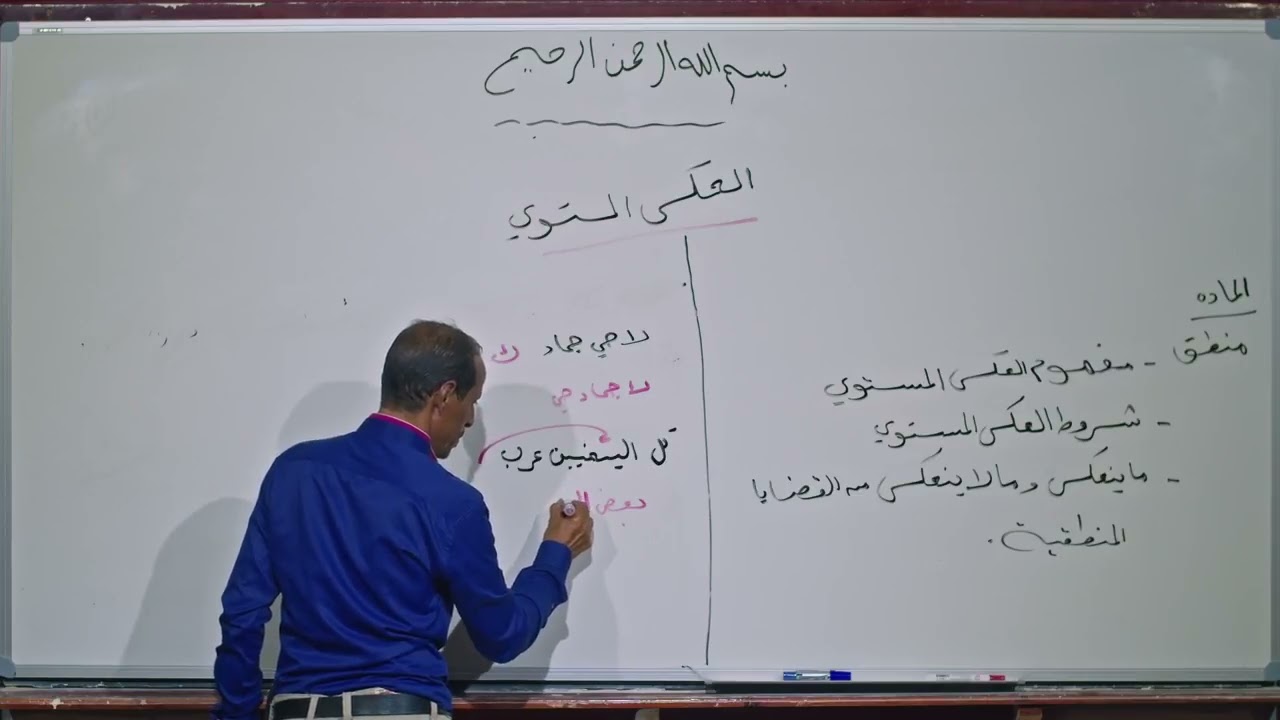 بسم الله الرحمن الرحيم
العكس المستوي
المادة
منطق - مفهوم العكس المستوي
- شروط العكس المستوي
- ما ينعكس وما لا ينعكس من القضايا
المنطقية .
لا حي جماد ك
لا جماد حي
كل اليمنيين عرب
بعض